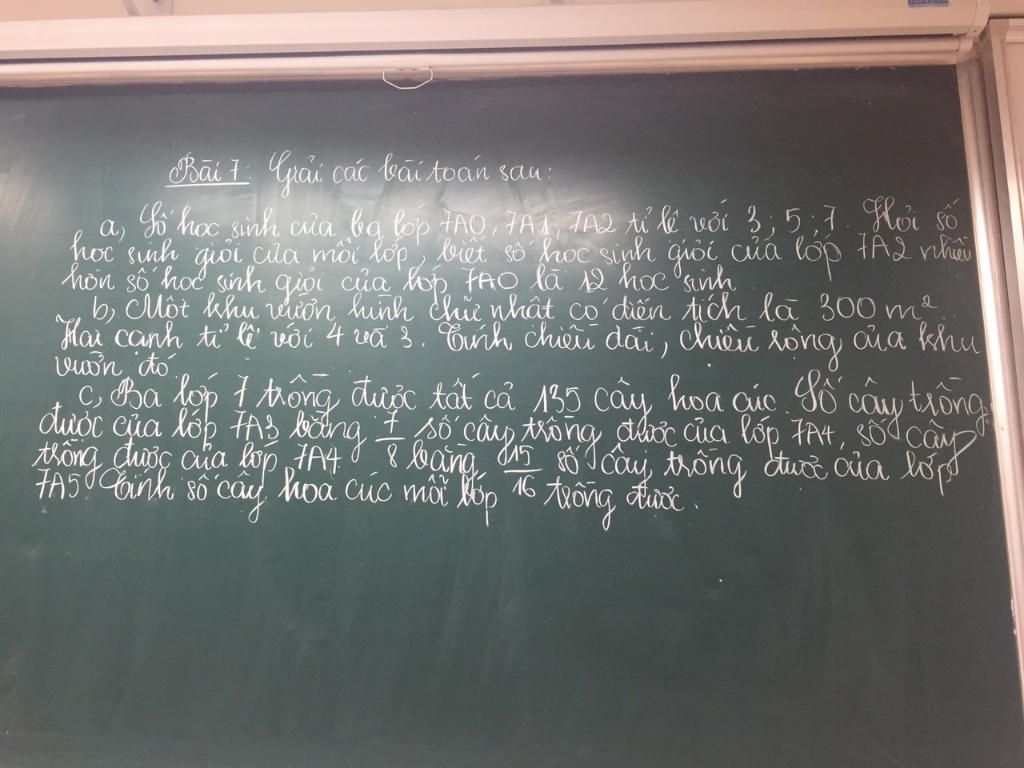 Bài 7: Giải các bài toán sau:
a, Số học sinh của ba lớp 7A0, 7A1, 7A2 tỉ lệ với 3; 5; 7. Hỏi số
học sinh giỏi của mỗi lớp, biết số học sinh giỏi của lớp 7A2 nhiều
hơn số học sinh giỏi của lớp 7A0 là 12 học sinh
b, Một khu vườn hình chữ nhật có diện tích là 300 m².
Hai cạnh tỉ lệ với 4 và 3. Tính chiều dài, chiều rộng của khu
vườn đó
c, Ba lớp 7 trồng được tất cả 135 cây hoa cúc. Số cây trồng
được của lớp 7A3 bằng 7/8 số cây trồng được của lớp 7A4, số cây
trồng được của lớp 7A4 bằng 15/16 số cây trồng được của lớp
7A5. Tính số cây hoa cúc mỗi lớp trồng được.